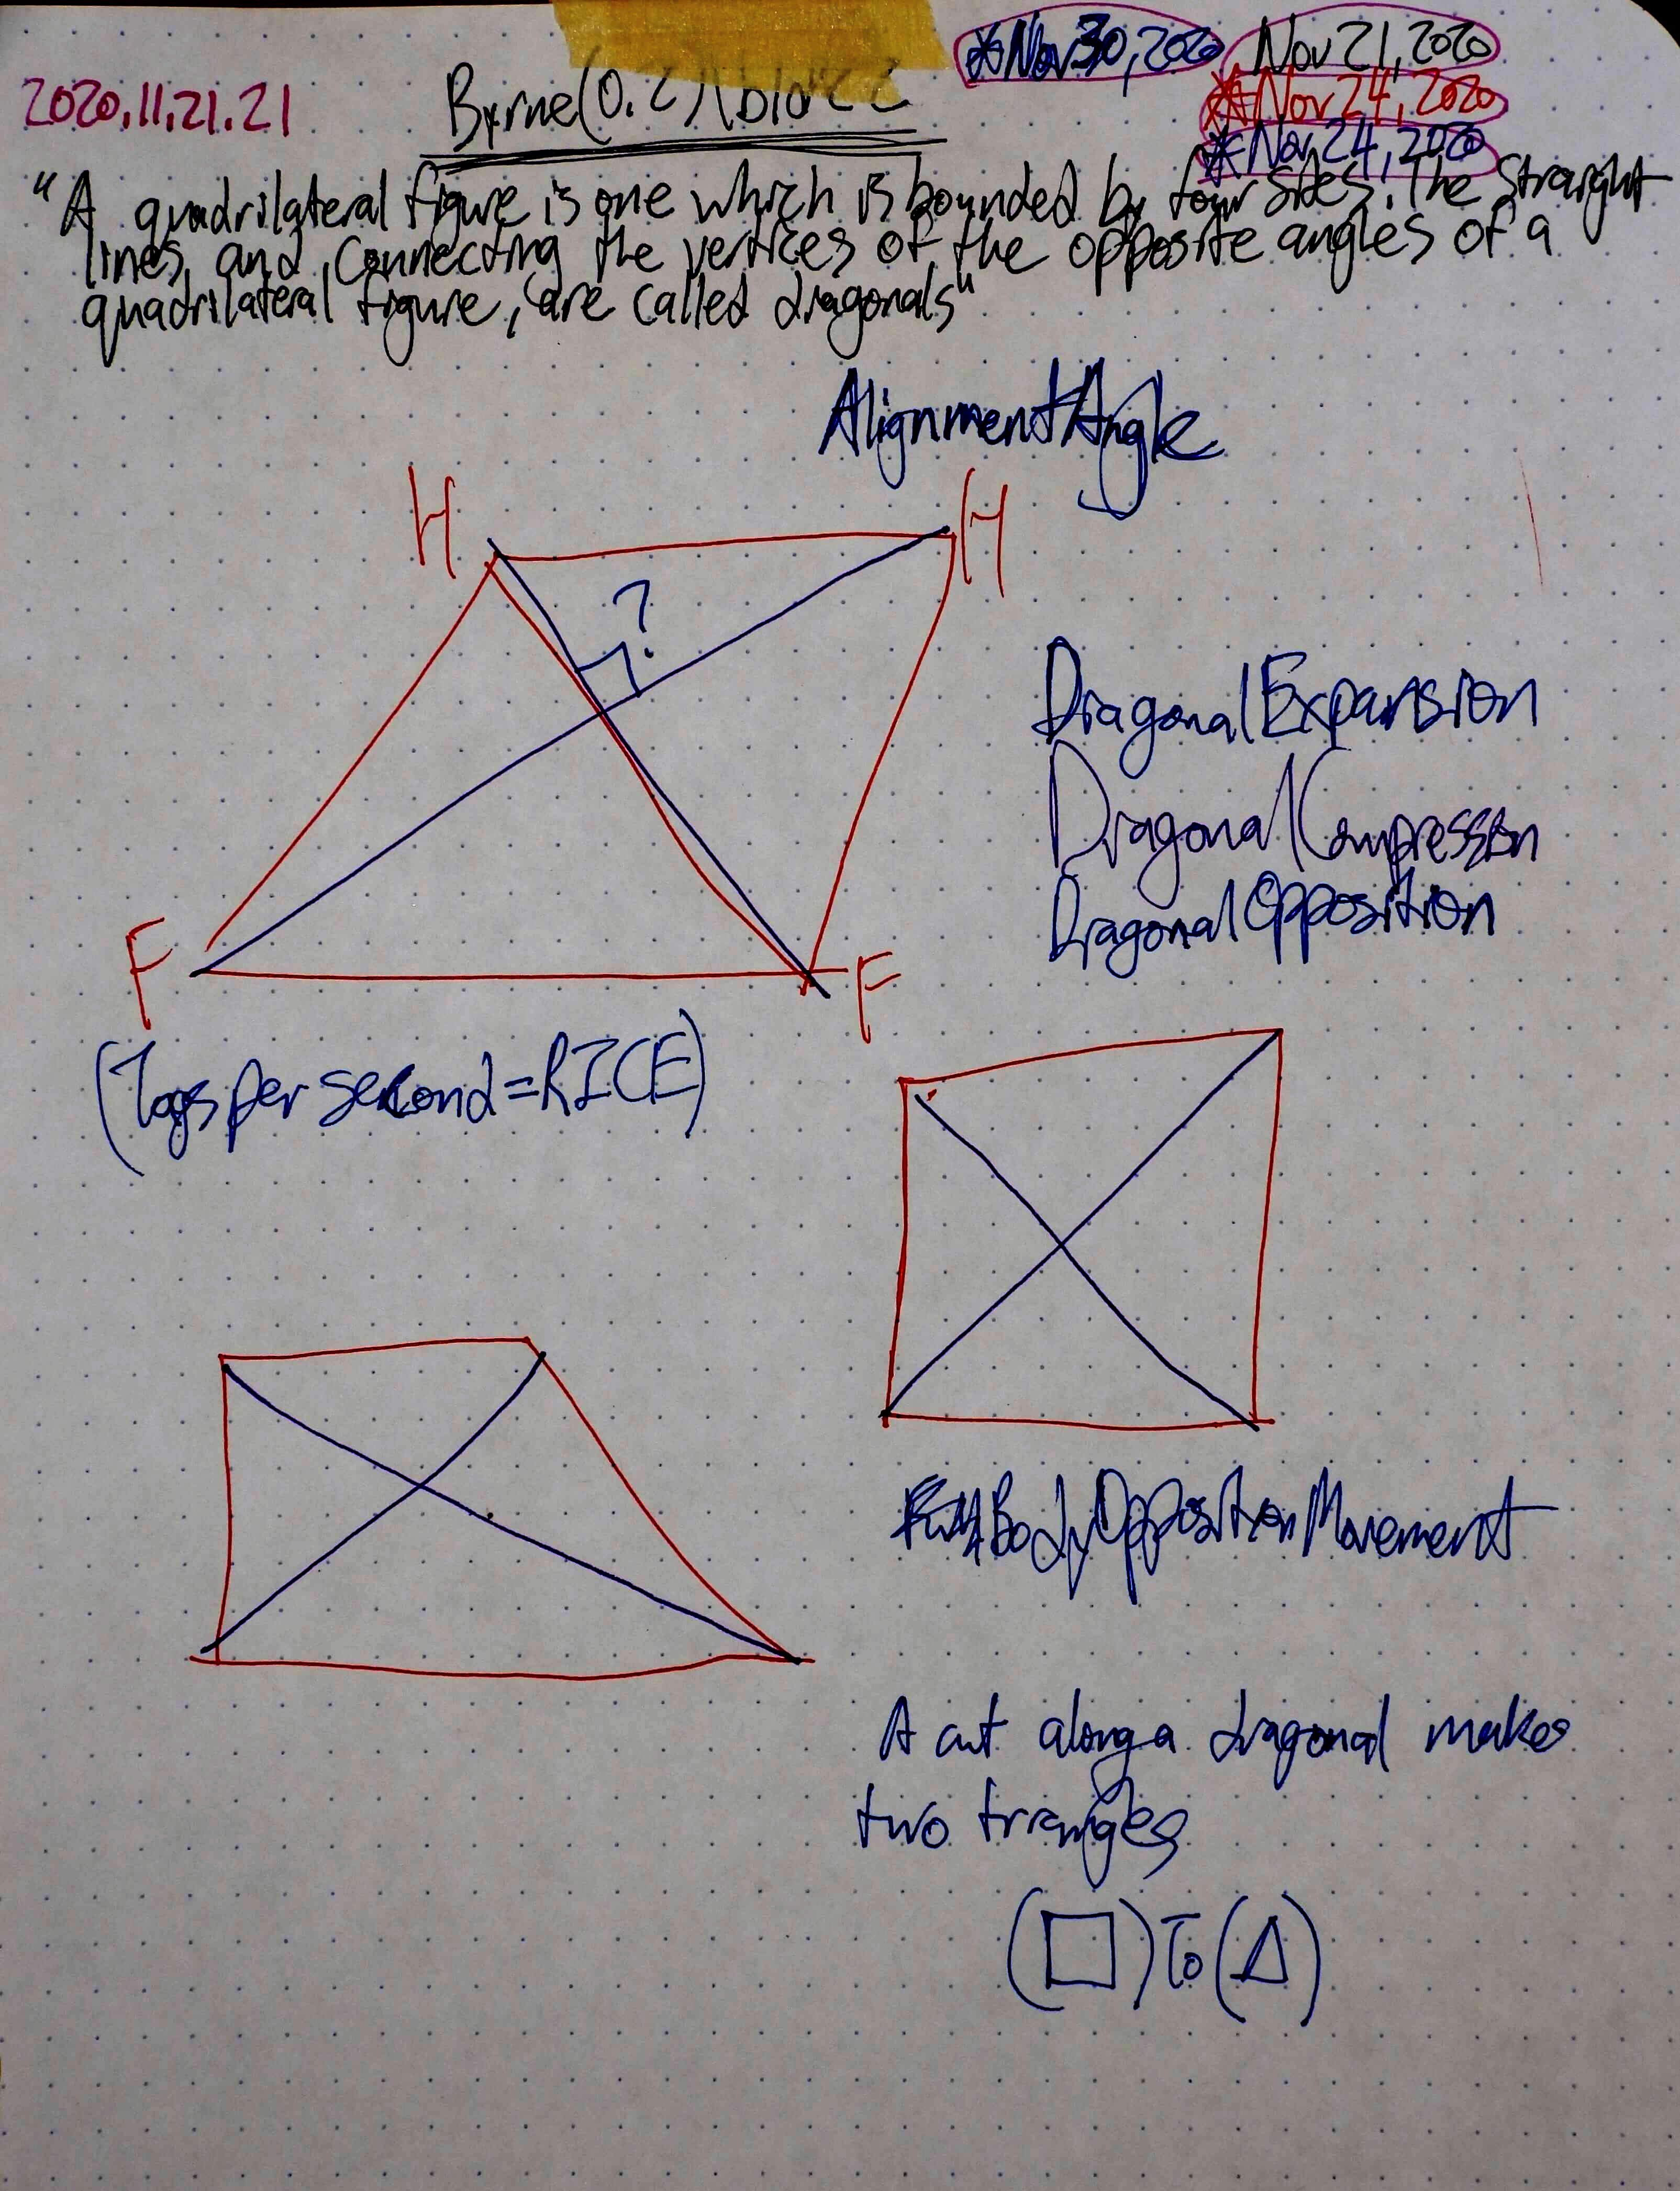 *Nov 30, 2020
Nov 21, 2020
2020.11.21.21
*Nov 24, 2020
Byrne(0.2)
*Nov 24, 2020
"A quadrilateral figure is one which is bounded by four sides. The straight
lines, and, connecting the vertices of the opposite angles of a
quadrilateral figure, are called diagonals"
AlignmentAngle
H H
?
DiagonalExpansion
DiagonalCompression
DiagonalOpposition
F F
per second=RICE)
BodyOppositionMovement
A cut along a diagonal makes
two triangles
(□) To (Δ)